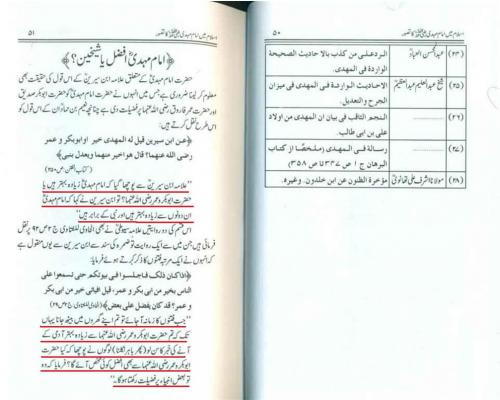 اسلام میں امام مہدیؓ کا تصور
۵۰
(۲۴)
عبدالمحسن العباد
الرد على من كذب بالاحاديث الصحيحة
الواردة في المهدى.
(۲۵)
شیخ عبدالعلیم عبدالعظیم
الاحاديث الواردة في المهدى في ميزان
الجرح والتعديل.
(۲۶)
النجم الثاقب في بيان ان المهدى من اولاد
على بن ابي طالب.
(۲۷)
رسالة في المهدى (ملخصًا از كتاب
البرهان ج ۱ ص ۳۴۷ تا ص ۳۵۸)
(۲۸)
مولانا اشرف علی تھانوی
مؤخرة الظنون عن ابن خلدون. وغيره.
اسلام میں امام مہدیؓ کا تصور
۵۱
﴿امام مہدیؓ افضل یا شیخین؟﴾
حضرت امام مہدیؓ کے متعلق علامہ ابن سیرینؒ کے اس قول کی حقیقت بھی
معلوم کر لینا ضروری ہے جس میں انہوں نے حضرت امام مہدیؓ کو حضرت ابوبکر صدیق
اور حضرت عمر فاروق رضی اللہ عنہما پر فضیلت دی ہے چنانچہ نعیم بن حمادؒ ان کے اس قول کو اس
طرح نقل کرتے ہیں:
﴿عن ابن سيرين قيل له المهدى خير او ابوبكر و عمر
رضى الله عنهما؟ قال هو اخير منهما ويعدل بنبى﴾
(کتاب الفتن: ص ۲۵۰)
"علامہ ابن سیرینؒ سے پوچھا گیا کہ امام مہدیؓ زیادہ بہتر ہیں یا
حضرت ابوبکر و عمر رضی اللہ عنہما؟ تو ابن سیرین نے کہا کہ امام مہدیؓ
ان دونوں سے زیادہ بہتر ہیں اور نبی کے برابر ہیں"
اس قسم کی دو روایتیں علامہ سیوطیؒ نے بھی الحاوی للفتاوی ج ۲ ص ۹۲ پر نقل
فرمائی ہیں جن میں سے ایک روایت تو ضمرہ کی سند سے ابن سیرین سے یوں منقول ہے
کہ انہوں نے ایک مرتبہ فتنوں کا ذکر کرتے ہوئے فرمایا:
﴿اذا كان ذلك فاجلسوا في بيوتكم حتى تسمعوا على
الناس بخير من ابى بكر و عمر، قيل افياتى خير من ابى بكر
و عمر؟ قد كان يفضل على بعض﴾
"جب فتنوں کا زمانہ آ جائے تو تم اپنے گھروں میں بیٹھ جانا یہاں
تک کہ تم حضرت ابوبکر و عمر رضی اللہ عنہما سے زیادہ بہتر آدمی کے
آنے کی خبر کا سن لو (پھر باہر نکلنا) لوگوں نے پوچھا کہ کیا حضرت
ابوبکر و عمر رضی اللہ عنہما سے بھی افضل کوئی شخص آئے گا؟ فرمایا کہ وہ
تو بعض انبیاء پر فضیلت رکھتا ہوگا۔"